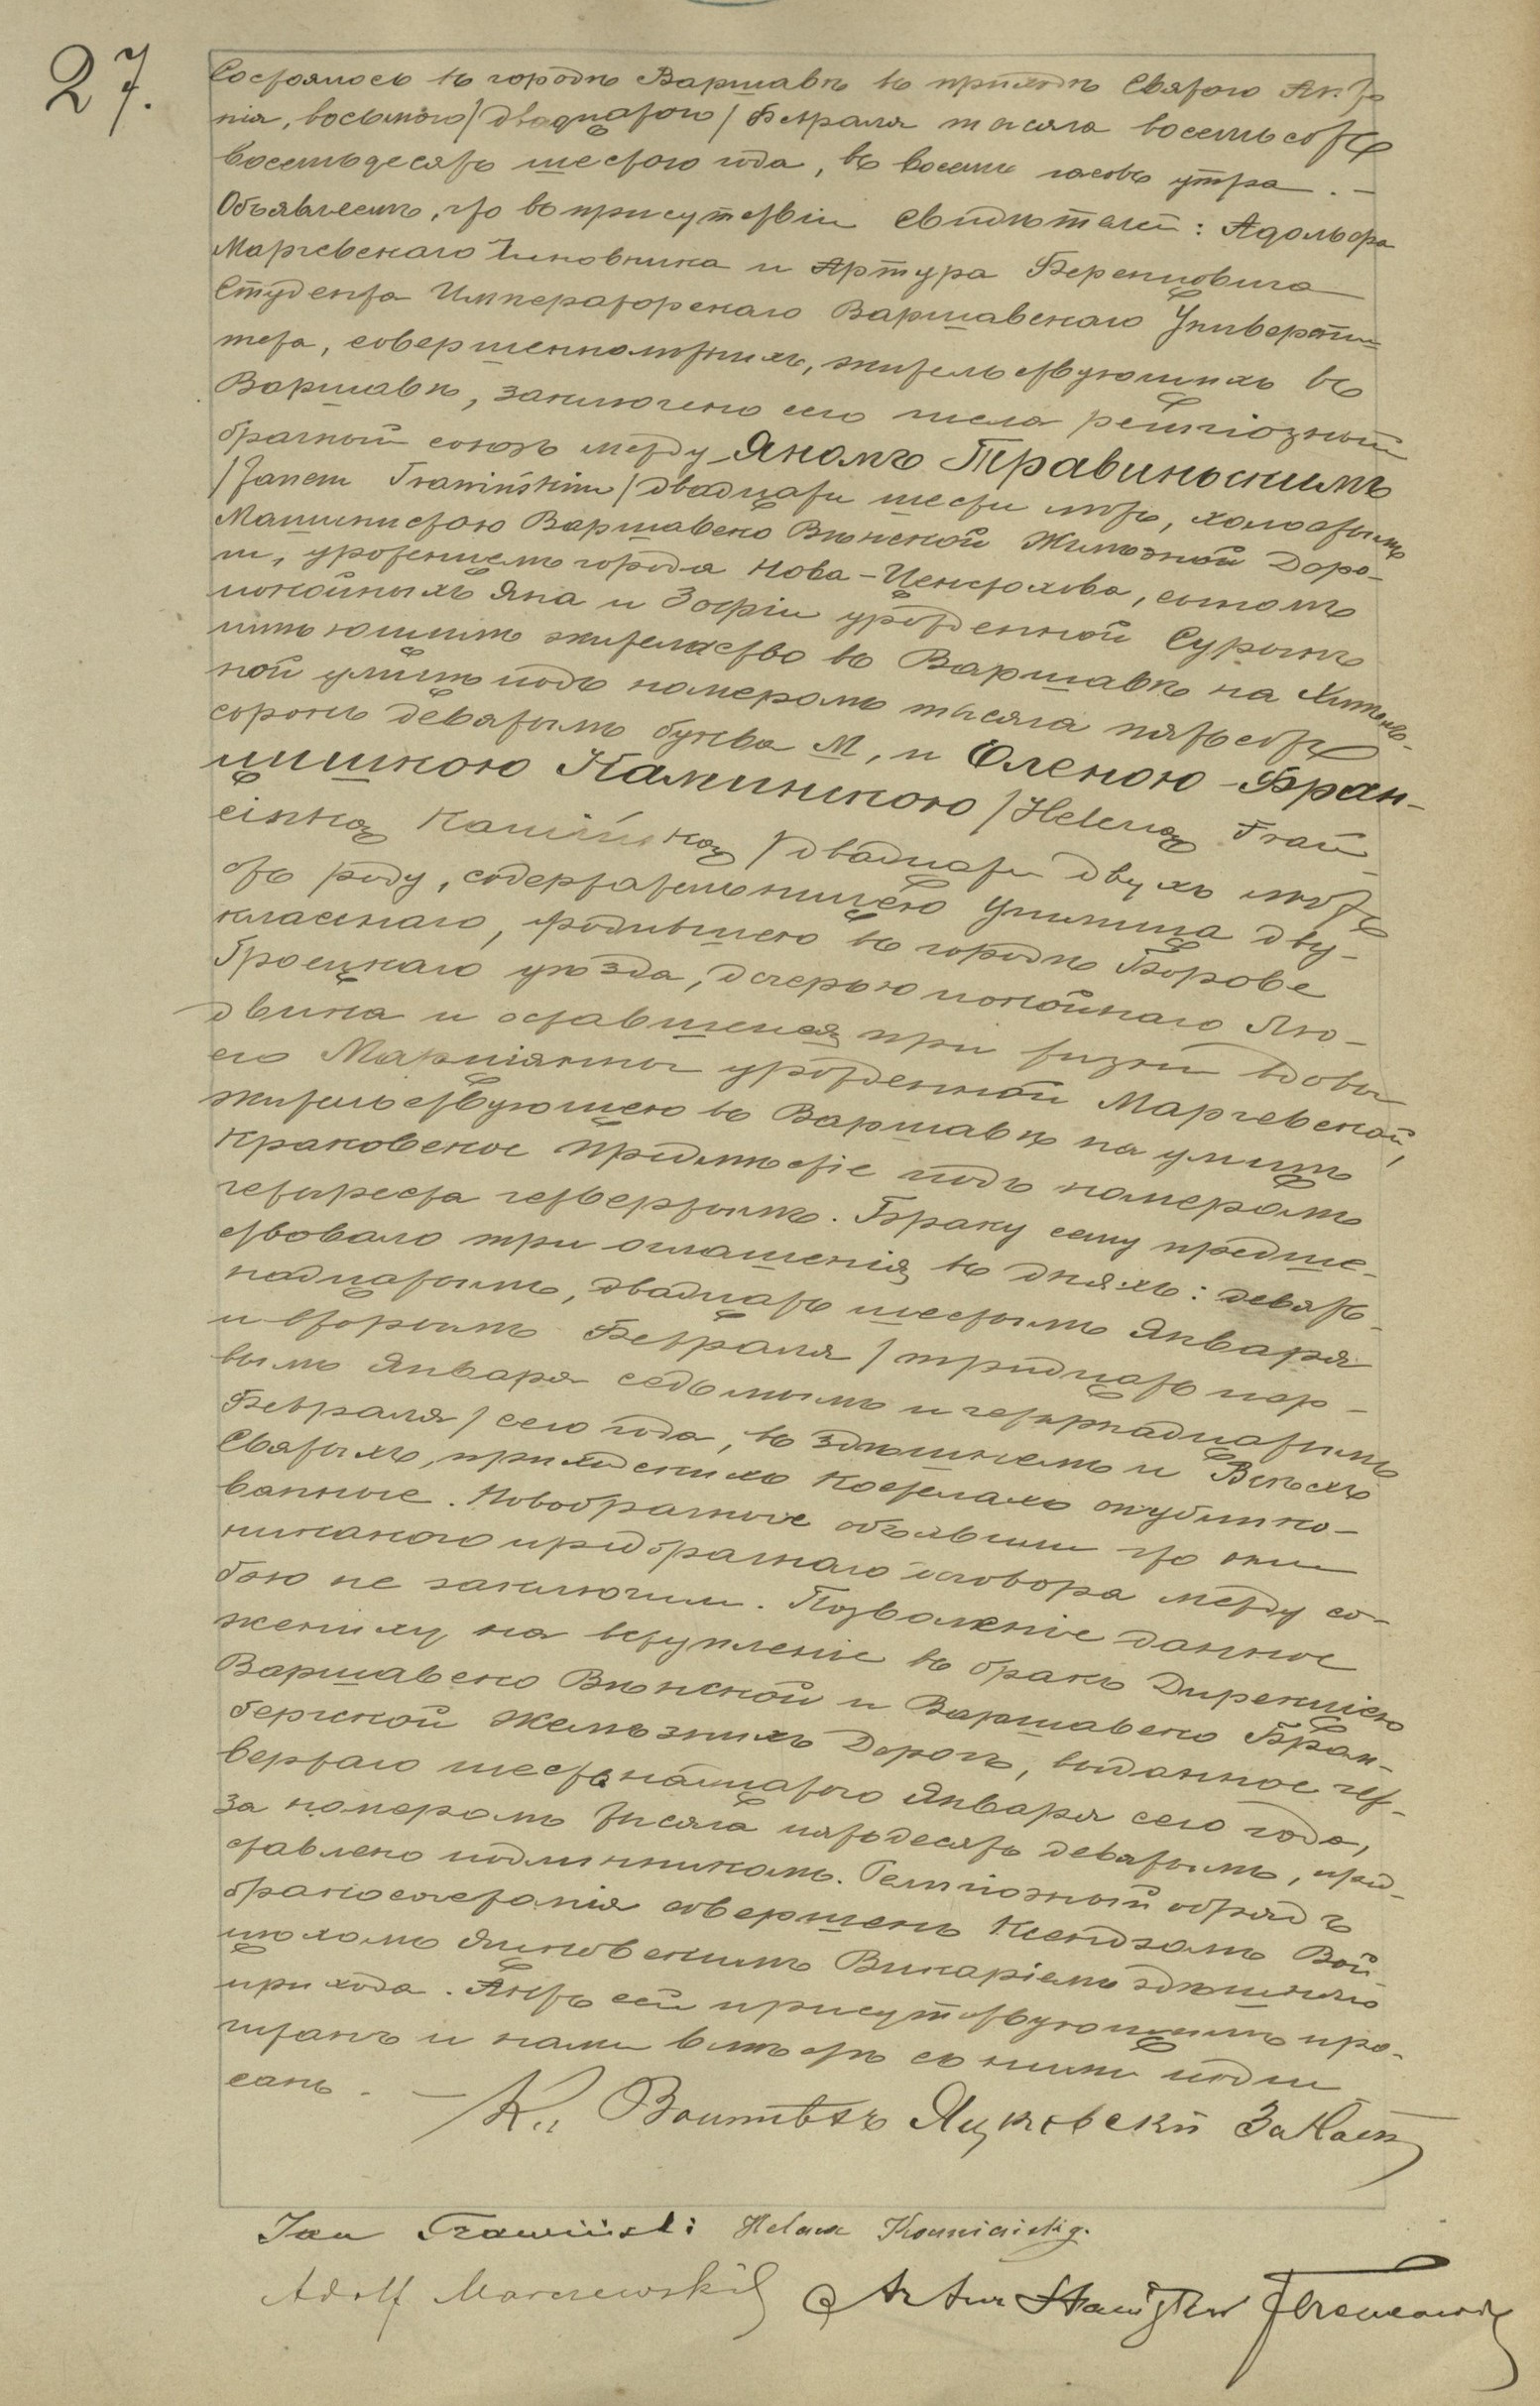 27.
Состоялось въ городѣ Варшавѣ въ приходѣ Святого Анто
нія, восьмого /двадцатого/ Февраля тысяча восемьсотъ
восемьдесятъ шестого года, въ восемь часовъ утра. —
Объявляемъ, что въ присутствіи свидѣтелей: Адольфа
Марчевскаго Чиновника и Артура Ференцовича
Студента Императорскаго Варшавскаго Университе
тета, совершеннолѣтнихъ, жительствующихъ въ
Варшавѣ, заключено сего числа религіозный
брачный союзъ между Яномъ Травиньскимъ
/Janem Trawińskim/ двадцати шести лѣтъ, холостымъ
Машинистою Варшавско Вѣнской Желѣзной Доро-
ги, уроженцемъ города Нова-Ченстохова, сыномъ
покойныхъ Яна и Зофіи урожденной Сурыкъ
имѣющимъ жительство въ Варшавѣ на Хмѣль-
ной улицѣ подъ номеромъ тысяча пятьсотъ
сорокъ девятымъ буква М, и Еленою-Фран-
цишкою Каминскою /Heleną Fran
ciszką Kamińską/ двадцати двухъ лѣтъ
отъ роду, содержательницею училища дву-
класснаго, родившеюся въ городѣ
Гроецкаго уѣзда, дочерью покойнаго Лю-
двика и оставшейся при жизни вдовы
его Маріянны урожденной Марчевской,
жительствующею въ Варшавѣ на улицѣ
Краковское Предмѣстіе подъ номеромъ
четыреста четвертымъ. Браку сему предше-
ствовало три оглашенія въ дняхъ: девят-
надцатымъ, двадцать шестымъ Января
и вторымъ Февраля /тридцать пер-
вымъ Января седьмымъ и четырнадцатымъ
Февраля/ сего года, въ здѣшнемъ и Всѣхъ
Святыхъ, приходскихъ Костелахъ опублико-
ванные. Новобрачные объявили что они
никакого предбрачнаго договора между со-
бою не заключили. Позволеніе данное
жениху на вступленіе въ бракъ Дирекціею
Варшавско Вѣнской и Варшавско Бром-
бергской Желѣзныхъ Дорогъ, выданное чет-
вертаго шестнадцатого Января сего года,
за номеромъ тысяча пятьдесятъ девятымъ, пред-
ставлено подлинникомъ. Религіозный обрядъ
бракосочетанія совершенъ Ксендзомъ Вой-
цѣхомъ Яцковскимъ Викаріемъ здѣшняго
прихода. Актъ сей присутствующимъ про-
читанъ и нами вмѣстѣ съ ними подпи
санъ. —
К. Войтѣхъ Яцковскій За Наст
Jan Trawiński Helena Kamińska.
Adolf Marczewski Artur Stanisław Ferencowicz